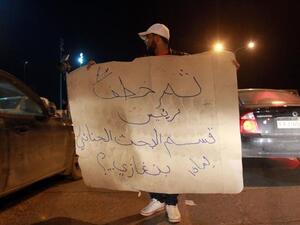 تم خطف
رئيس
قسم البحث الجنائي
بنغازي..؟